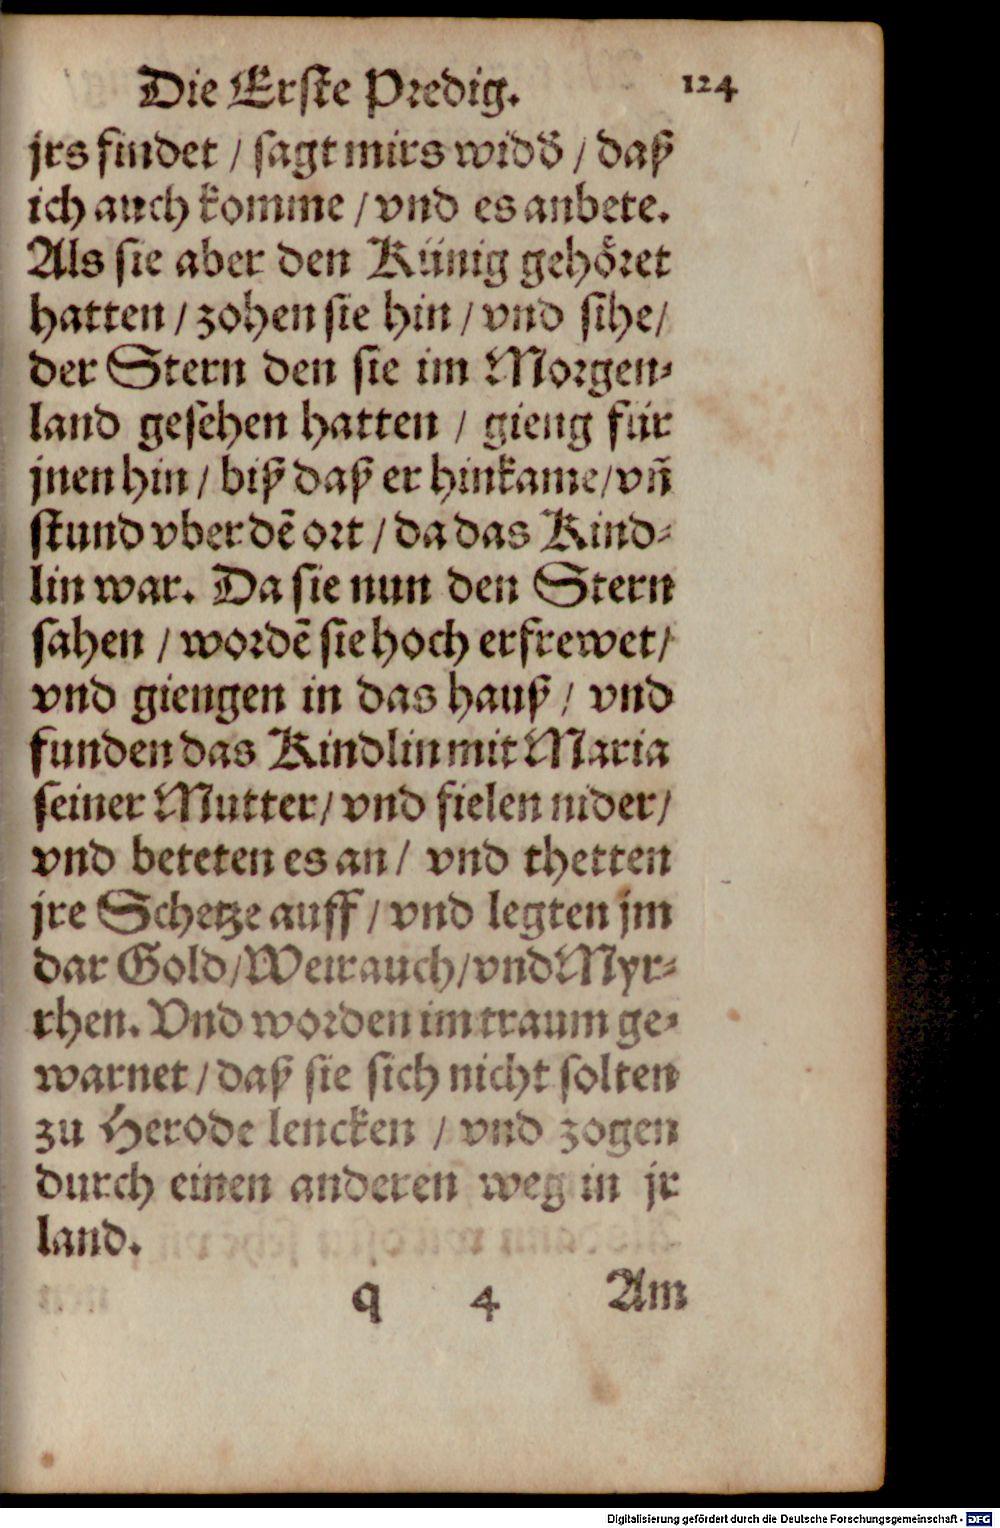 Die Erste Predig. 124
jrs findet / sagt mirs widď / daß
ich auch komme / vnd es anbete.
Als sie aber den Künig gehoͤret
hatten / zohen sie hin / vnd sihe /
der Stern den sie im Morgen⸗
land gesehen hatten / gieng für
jnen hin / biß daß er hinkame / vñ
stund vber dẽ ort / da das Kind⸗
lin war. Da sie nun den Stern
sahen / wordẽ sie hoch erfrewet /
vnd giengen in das hauß / vnd
funden das Kindlin mit Maria
seiner Mutter / vnd fielen nider /
vnd beteten es an / vnd thetten
jre Schetze auff / vnd legten jm
dar Gold / Weirauch / vnd Myr⸗
rhen. Vnd worden im traum ge⸗
warnet / daß sie sich nicht solten
zu Herode lencken / vnd zogen
durch einen anderen weg in jr
land.
q 4 Am
Digitalisierung gefördert durch die Deutsche Forschungsgemeinschaft - DFG